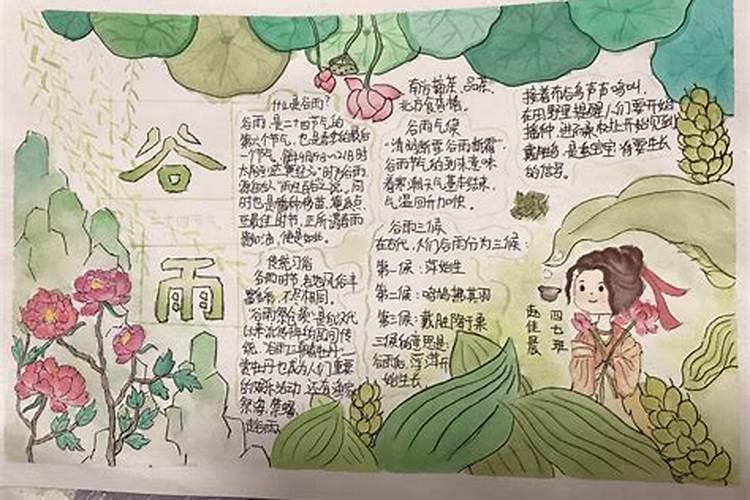 谷
雨
什么是谷雨?
谷雨是二十四节气的
第六个节气,也是春季的最后
一个节气,每年4月19~21日时
源自古人"雨生百谷"之说。同
时也是播种移苗、
至最佳时节,正所谓春雨
贵如油,便是如此。
传统习俗
谷雨时节,各地风俗丰
富多彩,不尽相同。
以来流传的民间传
统。谷雨
赏牡丹也成为人们重要
的娱乐活动,还有
祭海、
走谷雨。
有谷雨茶、品茶、
北方食香椿。
谷雨气候
"清明断雪,谷雨断霜"
谷雨节气的到来意味
着寒潮天气基本结束,
气温回升加快。
谷雨三候
在古代,人们谷雨分为三候:
第一候:萍始生
第二候:鸣鸠拂其羽
第三候:戴胜降于桑
三候的意思是:
谷雨后,浮萍开
始生长
接着布谷鸟声声鸣叫,
在田野里提醒人们要开始
播种,进而桑枝上开始见到
戴胜鸟,是蚕宝宝将要生长
的信号。
四七班
赵佳晨